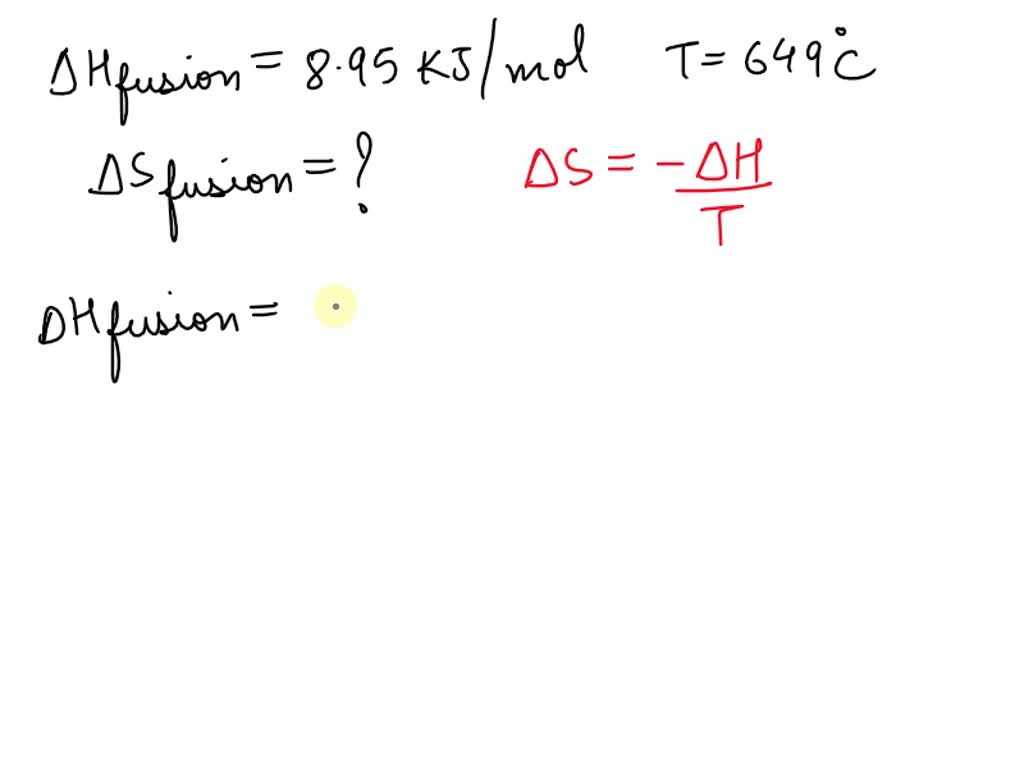 ΔHfusion = 8.95 KJ/mol T= 649°C
ΔSfusion = ? ΔS = -ΔH/T
DHfusion =